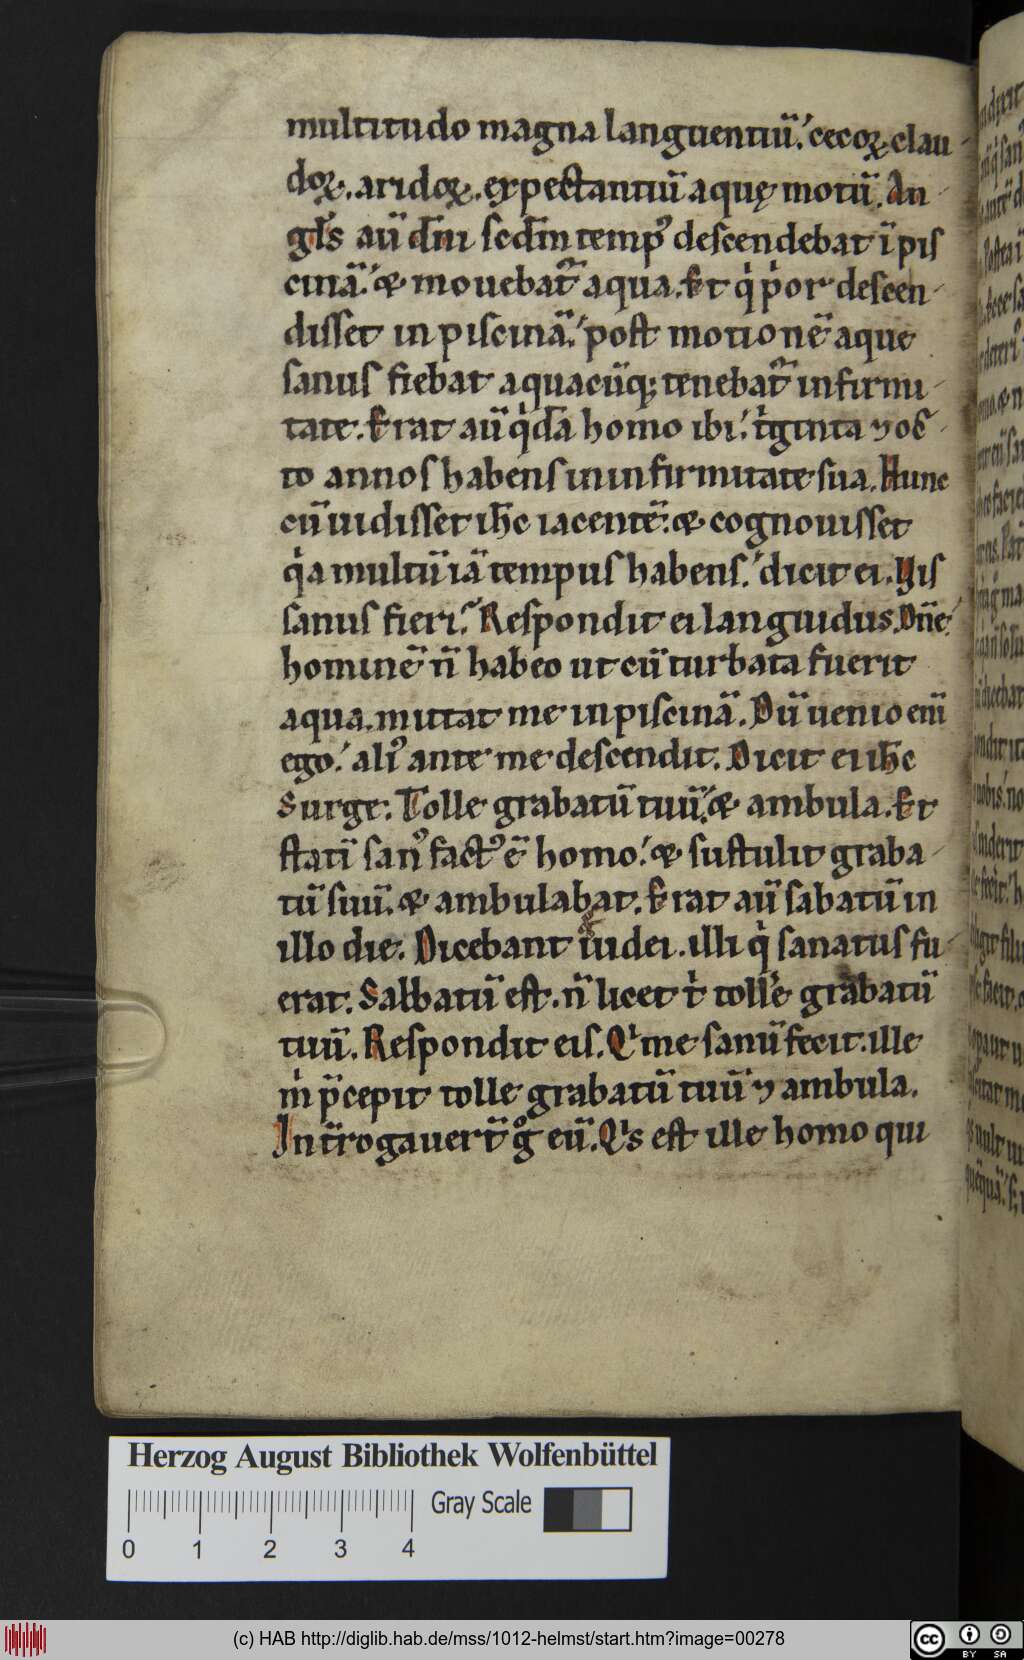 multitudo magna languentiū. cecoꝝ. clau
doꝝ. aridoꝝ. expectantiū aquę motū. An
gl̄s aū dn̄i scd̄m tempꝰ descendebat ī pis
cinā. & mouebat̄ aqua. Et qͥ pͥor descen
disset in piscinā. post motionē aque
sanus fiebat a quacūq; tenebat̄ infirmi
tate. Erat aū qͥdā homo ibi. tͥginta ⁊ oc
to annos habens in infirmitate sua. Hunc
cū uidisset ih̄c iacentē. & cognouisset
qͥa multū iā tempus habens. dicit ei. Uis
sanus fieri. Respondit ei languidus. Dn̄e
hominē n̄ habeo ut cū turbata fuerit
aqua. mittat me in piscinā. Dū uenio enī
ego. aliꝰ ante me descendit. Dicit ei ih̄c
Surge. Tolle grabatū tuū. & ambula. Et
statī sanꝰ factꝰ ē homo. & sustulit graba
tū suū. & ambulabat. Erat aū sabatū in
illo die. Dicebant iudei. illi qͥ sanatus fu
erat. Sabbatū est. n̄ licet tͥ tollēe grabatū
tuū. Respondit eis. Qͥ me sanū fecit. ille
mͥ p̄cepit tolle grabatū tuū ⁊ ambula.
Int̄rogauert̄ gͦ eū. Qͥs est ille homo qui
Herzog August Bibliothek Wolfenbüttel
Gray Scale
0 1 2 3 4
(c) HAB http://diglib.hab.de/mss/1012-helmst/start.htm?image=00278
cc BY SA